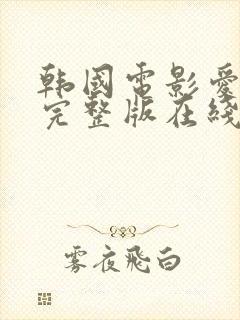 韩國電影愛
完整版在綫
雾夜飛白